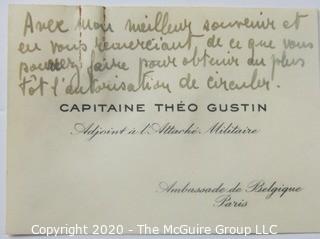 Avec mon meilleur souvenir et
en vous remerciant, de ce que vous
pouvez faire pour obtenir au plus
tôt l'autorisation de circuler.
CAPITAINE THÉO GUSTIN
Adjoint à l'Attaché Militaire
Ambassade de Belgique
Paris
Copyright 2020 - The McGuire Group LLC